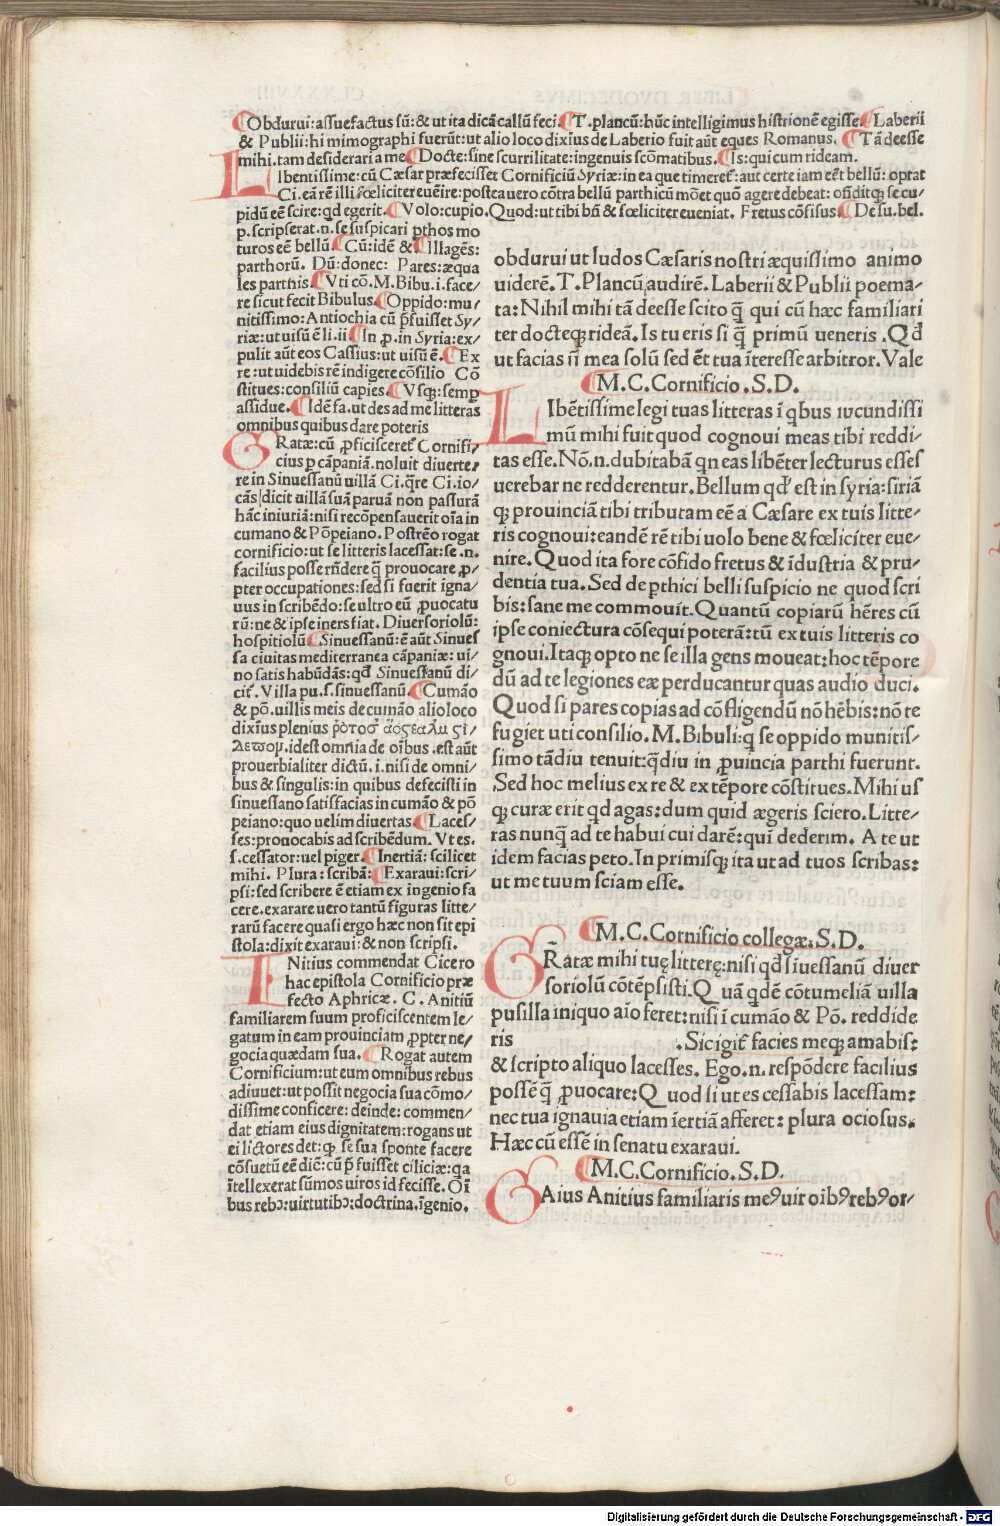 Obdurui:assuefactus sū:& ut ita dicā callū feci. T.plancū:hūc intelligimus histrionē egisse. Laberii
& Publii:hi mimographi fuerūt:ut alio loco dixi us de Laberio fuit aūt eques Romanus. Tā deesse
mihi.tam desiderari a me Docte:sine scurrilitate:ingenuis scōmatibus. Is:qui cum rideam.
LIbentissime:cū Cæsar præfecisset Cornificiū Syriæ:in ea que timeret̄:aut certe iam eēt bellū: optat
Ci.eā rē illi fœliciter euēire:postea uero cōtra bellū parthicū mōet quō agere debeat: ostēditq; se cu/
pidū eē scire:qd egerit. Volo:cupio.Quod:ut tibi bn̄ & fœliciter eueniat. Fretus cōfisus De su.bel.
p.scripserat.n.se suspicari pthos mo
turos eē bellū Cū:idē & Illa gēs:
parthorū. Dū:donec: Pares:æqua
les parthis. Vti cō.M.Bibu.i.face/
re sicut fecit Bibulus. Oppido:mu/
nitissimo:Antiochia cū p̄fuisset Sy/
riæ:ut uisū ē li.ii In ꝓ.in Syria:ex/
pulit aūt eos Cassius:ut uisū ē. Ex
re:ut uidebis rē indigere cōsilio Cō
stitues:consiliū capies. Vsq;:semp
assidue. Idē fa.ut des ad me litteras
omnibus quibus dare poteris
GRatæ:cū ꝓficisceret̄ Cornifi/
cius p cāpaniā.noluit diuerte/
re in Sinuessanū uillā Ci.q̄re Ci.io/
cās dicit uillā suā paruā non passurā
hāc iniuriā:nisi recōpensauerit oīa in
cumano & Pōpeiano.Postrēo rogat
cornificio:ut se litteris lacessat:se .n.
facilius posse rn̄dere q̄ prouocare ꝓ/
pter occupationes:sed si fuerit igna/
uus in scribēdo:se ultro eū ꝓuocatu
rū:ne & ipse iners fiat. Diuersoriolū:
hospitiolū Sinuessanū:ē aūt Sinues
sa ciuitas mediterranea cāpaniæ:ui/
no satis habūdās:qd Sinuessanū di/
cit̄.Villa pu.s.sinuessanū. Cumāo
& pō.uillis meis de cumāo alio loco
diximus plenius
.idest omnia de oībus.est aūt
prouerbialiter dictū.i.nisi de omni/
bus & singulis:in quibus defecisti in
sinuessano satisfacias in cumāo & pō
peiano:quo uelim diuertas Laces/
ses:prouocabis ad scribēdum. Vt es.
s.cessator:uel piger. Inertiā: scilicet
mihi. Plura:scribā: Exaraui:scri/
psi:sed scribere ē etiam ex ingenio fa
cere.exarare uero tantū figuras litte/
rarū facere quasi ergo hæc non sit epi
stola:dixit exaraui:& non scripsi.
ENitius commendat Cicero
hac epistola Cornificio præ
fecto Aphricæ. C. Anitiū
familiarem suum proficiscentem le/
gatum in eam prouinciam ꝓpter ne/
gocia quædam sua. Rogat autem
Cornificium:ut eum omnibus rebus
adiuuet:ut possit negocia sua cōmo/
dissime conficere: deinde: commen/
dat etiam eius dignitatem:rogans ut
ei lictores det:qꝫ se sua sponte facere
cōsuetū eē diē:cū p̄fuisset ciliciæ:qa
ītellexerat sūmos uiros id fecisse. Oī
bus rebꝰ:uirtutibꝰ:doctrina.īgenio.
obdurui ut ludos Cæsaris nostri æquissimo animo
uiderē.T.Plancū,audirē.Laberii & Publii poema/
ta:Nihil mihi tā deesse scito q̄ qui cū hæc familiari
ter docteq; rideā.Is tu eris si q̄ primū ueneris .Qd
ut facias n̄ mea solū sed ēt tua īteresse arbitror.Vale
M.C.Cornificio.S.D.
LIbētissime legi tuas litteras ī qbus iucundissi
mū mihi fuit quod cognoui meas tibi reddi/
tas esse.Nō.n.dubitabā qn eas libēter lecturus esses
uerebar ne redderentur.Bellum qd est in syria:siriā
q; prouinciā tibi tributam eē a Cæsare ex tuis litte/
ris cognoui:eandē rē tibi uolo bene & fœliciter eue/
nire.Quod ita fore cōfido fretus & īdustria & pru/
dentia tua. Sed de pthici belli suspicio ne quod scri
bis:sane me commouit.Quantū copiarū hēres cū
ipse coniectura cōsequi poterā:tū ex tuis litteris co
gnoui.Itaq; opto ne se illa gens moueat:hoc tēpore
dū ad te legiones eæ perducantur quas audio duci.
Quod si pares copias ad cōfligendū nō hēbis:nō te
fugiet uti consilio.M.Bibuli:q se oppido munitis/
simo tādiu tenuit:qdiu in ꝓuincia parthi fuerunt.
Sed hoc melius ex re & ex tēpore cōstitues.Mihi us
q; curæ erit qd agas:dum quid ægeris sciero.Litte/
ras nunq̄ ad te habui cui darē:qui dederim. A te ut
idem facias peto.In primisq; ita ut ad tuos scribas:
ut me tuum sciam esse.
M.C.Cornificio collegæ.S.D.
GRatæ mihi tuę litterę:nisi qd siuessanū diuer
soriolū cōtēpsisti.Quā qdē cōtumeliā uilla
pusilla iniquo aīo feret:nisi ī cumāo & Pō.reddide
ris .Sic igit̄ facies meq; amabis:
& scripto aliquo lacesses. Ego.n.respōdere facilius
possē q̄ ꝓuocare:Quod si ut es cessabis lacessam:
nec tua ignauia etiam īertiā afferet: plura ociosus.
Hæc cū essē in senatu exaraui.
M.C.Cornificio.S.D.
GAius Anitius familiaris meꝰ uir oibꝰ rebꝰ or/
Digitalisierung gefördert durch die Deutsche Forschungsgemeinschaft - DFG